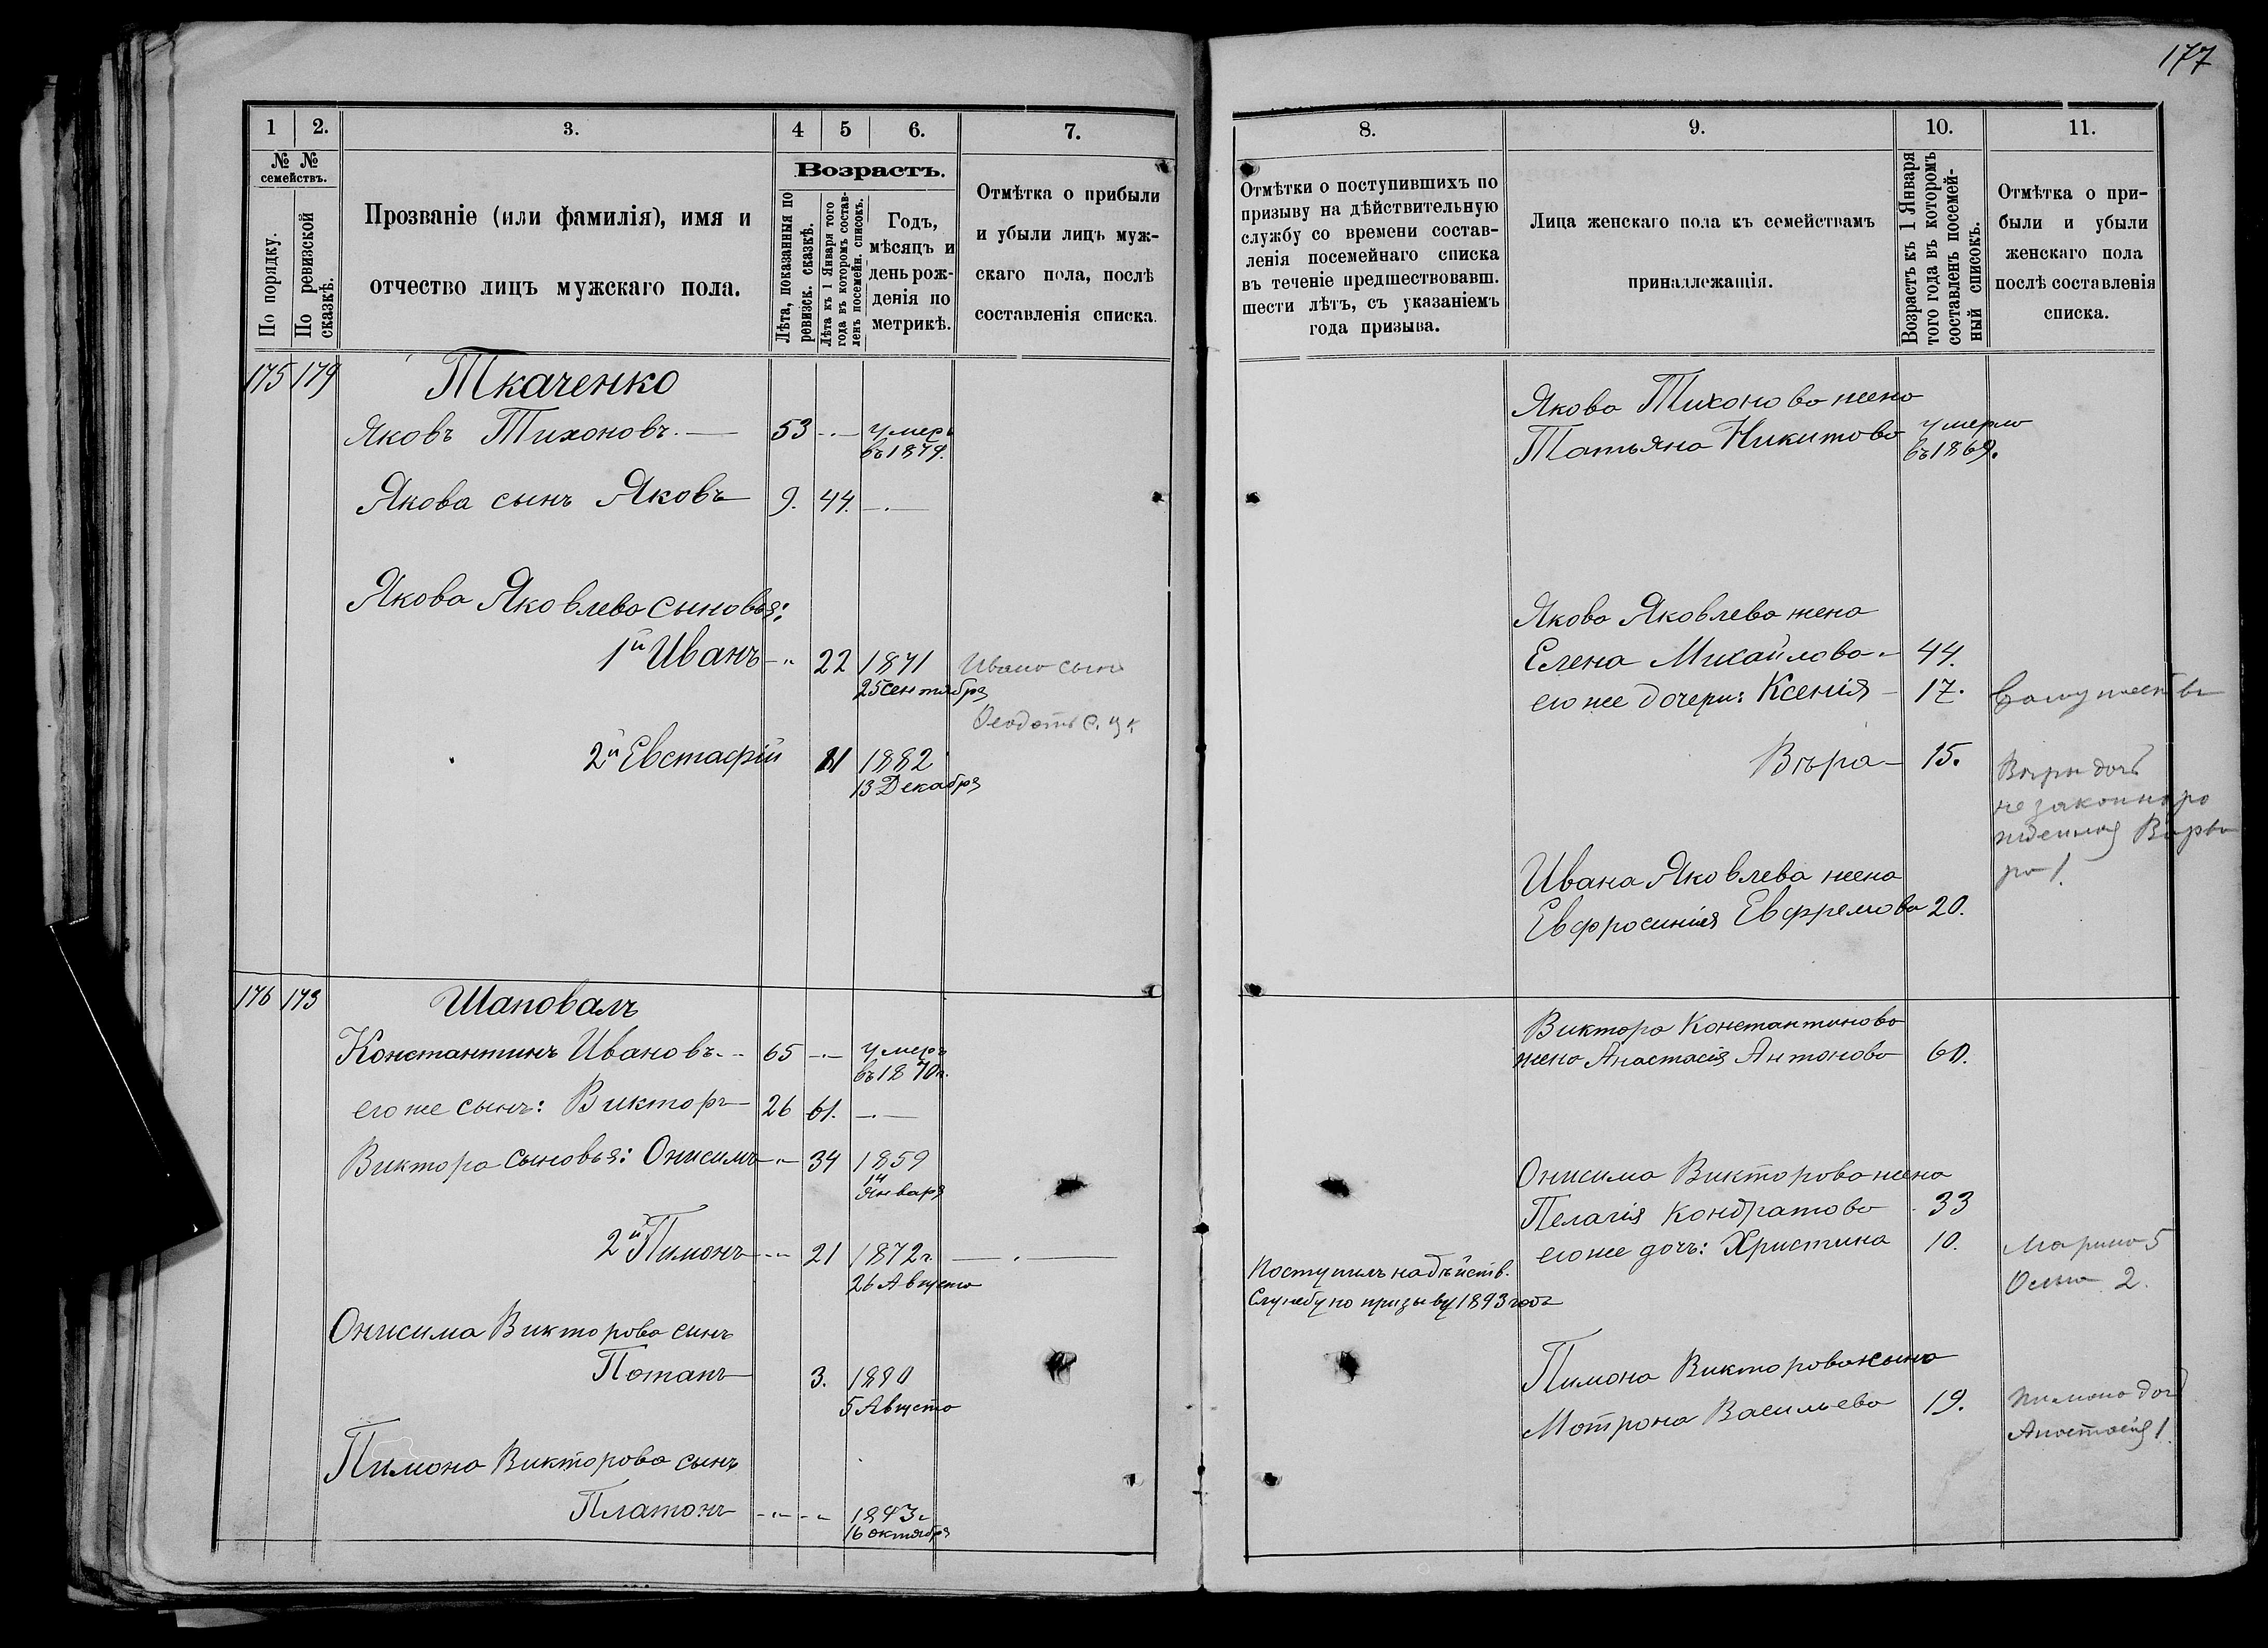 177
1
2.
3.
4
5
6.
7.
№ №
семействъ.
По порядку.
По ревизской
сказкѣ.
Прозваніе (или фамилія), имя и
отчество лицъ мужскаго пола.
Возрастъ.
Лѣта, показанныя по
ревизск. сказкѣ.
Лѣта къ 1 Января того
года въ которомъ состав-
ленъ посемейн. списокъ.
Годъ,
мѣсяцъ и
день рож-
денія по
метрикѣ.
Отмѣтка о прибыли
и убыли лицъ муж-
скаго пола, послѣ
составленія списка.
175 179 Ткаченко
Яковъ Тихоновъ.— 53 -.- умеръ
въ 1879.
Якова сынъ Яковъ 9. 44. -.-
Якова Яковлева сыновья:
1й Иванъ - " 22 1871 Ивана сынъ
25 сентября
Ѳеодотъ
2й Евстафій 11 1882
13 Декабря
176 173 Шаповалъ
Константинъ Ивановъ. - 65 -.- умеръ
въ 1870г.
его же сынъ: Викторъ 26 61. -.-
Виктора сыновья: Онисимъ - 34 1859
14
Января
2й Пимонъ - " 21 1872г. — . —
26 Августа
Онисима Викторова сынъ
Потапъ 3. 1890
5 Августа
Пимона Викторова сынъ
Платонъ - " - " 1893г
16 октября
8.
9.
10.
11.
Отмѣтки о поступившихъ по
призыву на дѣйствительную
службу со времени состав-
ленія посемейнаго списка
въ теченіе предшествовавш.
шести лѣтъ, съ указаніемъ
года призыва.
Лица женскаго пола къ семействамъ
принадлежащія.
Возрастъ къ 1 Января
того года въ которомъ
составленъ посемей-
ный списокъ.
Отмѣтка о при-
были и убыли
женскаго пола
послѣ составленія
списка.
Якова Тихонова жена
Татьяна Никитова умерла
въ 1869.
Якова Яковлева жена
Елена Михайлова - 44.
его же дочери: Ксенія - 17. Взамужествѣ
Вѣра - 15. Вѣры дочь
незаконноро
жденная Варва
ра 1.
Ивана Яковлева жена
Евфросинія Евфремова 20.
Виктора Константинова
жена Анастасія Антонова 60.
Онисима Викторова жена
Пелагія Кондратова 33
его же дочь: Христина 10. Марина 5
2.
Поступилъ на дѣйств.
Службу по призыву 1893 года
Пимона Викторова жена
Мотрона Васильева 19. Пимона дочь
Анастасія 1.